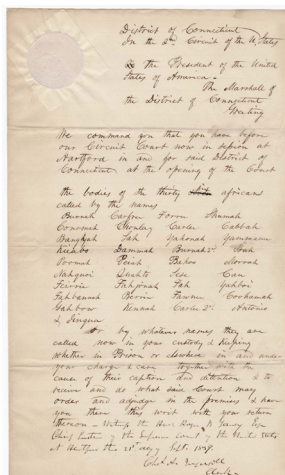 District of Connecticut
In the 2d Circuit of the U. States
the President of the United
States of America -
The Marshall of
the District of Connecticut
Greeting
We command you that you have before
our Circuit Court now in session at
Hartford in and for said District of
Connecticut at the opening of the Court
the bodies of the thirty africans
called by the names
Burnah Carpree Forre Shumah
Conomah Chooley Carlee Cabbah
Bangyah Fah Yahonah Yammone
Kimbo Dammah Burnah 2d Bah
Poomah Peish Bahoo Morrah
Nahquoi Quahto Sese Can
Fahbannah Berrie Fawnee Chockamah
Gahbow Kennah Carlee 2d Antonio
& Jingua
Or by whatever names they are
called now in your custody & keeping
whether in Prison or elsewhere in and under
your charge & care together with the
cause of their caption and detention to
receive and do what said Court may
order and adjudge in the premises & have
you then there this writ with your return
thereon - Witness the Hon Roger B Taney Esq
Chief Justice of the Supreme Court of the United States
At Hartford the day of Sept. 1839
Clerk